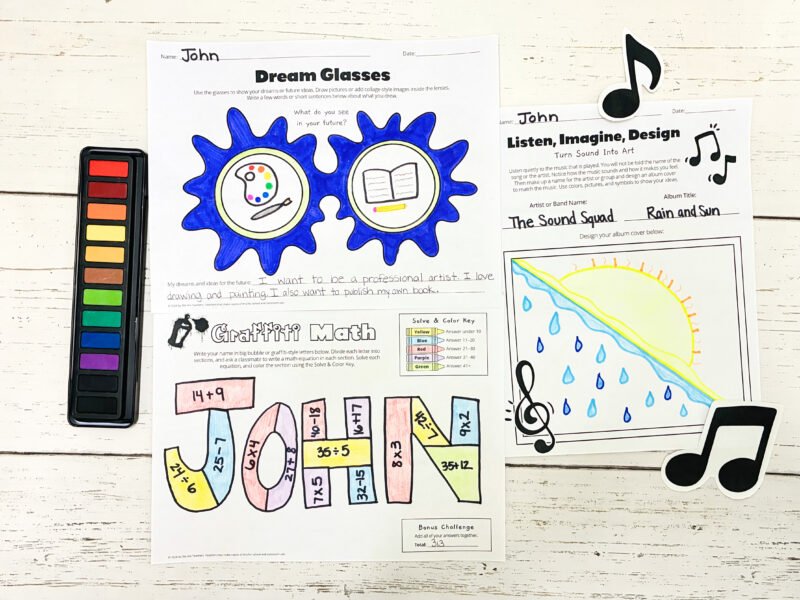 Name: John Date:
Dream Glasses
Use the glasses to show your dreams or future ideas. Draw pictures or add collage-style images inside the lenses.
Write a few words or short sentences below about what you drew.
What do you see
in your future?
My dreams and ideas for the future: I want to be a professional artist. I love
drawing and painting. I also want to publish my own book.
Graffiti Math
Write your name in big bubble or graffiti-style letters below. Divide each letter into
sections, and ask a classmate to write a math equation in each section. Solve each
equation, and color the section using the Solve & Color Key.
Solve & Color Key
Yellow Answer under 10
Blue Answer 11–20
Red Answer 21–30
Purple Answer 31–40
Green Answer 41+
14+9
25-7
24÷6
6x4
27+8
40-18
16+17
35÷5
7x5
32-15
8x3
42÷7
9x2
35+12
Bonus Challenge
Add all of your answers together.
Total: 313
Name: John Date:
Listen, Imagine, Design
Turn Sound Into Art
Listen quietly to the music that is played. You will not be told the name of the
song or the artist. Notice how the music sounds and how it makes you feel.
Then make up a name for the artist or group and design an album cover
to match the music. Use colors, pictures, and symbols to show your ideas.
Artist or Band Name: Album Title:
The Sound Squad Rain and Sun
Design your album cover below: